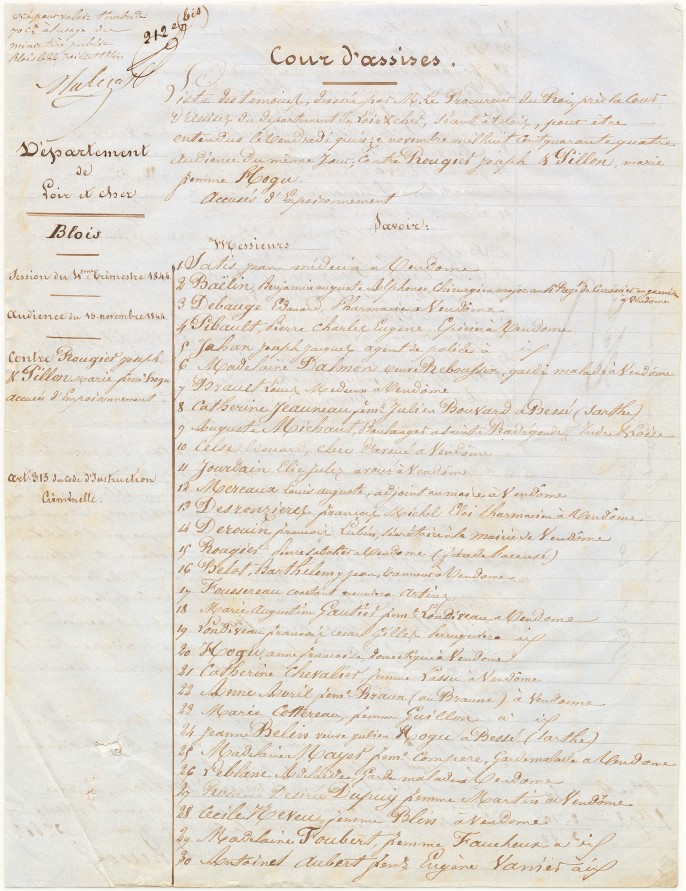 visé pour valoir timbre de
70 c. à l'usage du
ministère public
Blois le
212e (bis)
Cour d'assises.
Liste des temoins, dressée par M. Le Procureur du Roi, près la Cour
d'assises du departement de Loir & cher, séant à Blois, pour être
entendus le Vendredi quinze novembre mil huit cent quarante quatre
audience du même jour, Contre Rougier joseph & Pillon, marie
femme Hogu
accusés d'Empoisonnement
Savoir:
Département
de
Loir & cher
Blois
Session du 4eme trimestre 1844
Audience du 15 novembre 1844
Contre Rougier joseph
& Pillon marie fem. hogu
accusés d'Empoisonnement.
Art. 315 du Code d'Instruction
Criminelle.
Messieurs
1 Satis jean médecin à Vendome
2 Baëlen Benjamin auguste Alphonse Chirurgien major au Regt. de Cuirassiers en garnison
à Vendôme
3 Debauge Edouard, Pharmacien à Vendôme
4 Pibault Pierre Charles Eugène Epicier à Vendome
5 Jahan joseph jacques agent de police à id
6 Madelaine Dalmon veuve Reboussin, garde malade à Vendôme
7 Louis Medecin à Vendôme
8 Catherine Jeauneau fem. Julien Bouvard à Bessé (Sarthe)
9 Auguste Michaut, Boulanger à Sainte Radegonde, Indre & Loire
10 Edouard, clerc d'avoué à Vendome
11 Jourdain Elie jules avoué à Vendôme
12 Mereaux Louis auguste, adjoint au maire à Vendôme
13 Desronzieres françois Michel Eloi Pharmacien à Vendôme
14 Derouin françois Lubin, Secrétaire à la mairie de Vendome
15 Rougier Pierre sabotier à Vendome (père de l'accusé)
16 Belot, Barthelemy jean, tanneur à Vendome
17 Foussereau constant meunier à Artins
18 Marie Augustine Gautier fem. Londiveau à Vendome
19 Londiveau françois cesar Gilles Perruquier à id
20 Hogu anne françoise domestique à Vendome
21 Catherine Chevallier femme à Vendôme
22 Anne Avril fem. Braun (ou Braune) à Vendome
23 Marie Cottereau, femme Guillon à id
24 Jeanne Belin veuve julien Hogu à Bessé (Sarthe)
25 Madelaine Mayet fem. Compere, Garde malade à Vendome
26 Leblanc Adelaide, Garde malade à Vendome
27 Desirée Dupuy femme Martin à Vendôme
28 Cecile Neveu, femme Polin à Vendome
29 Madelaine Foubert, femme Faucheux à id
30 Antoinet Aubert fem. Eugène Vanier à id